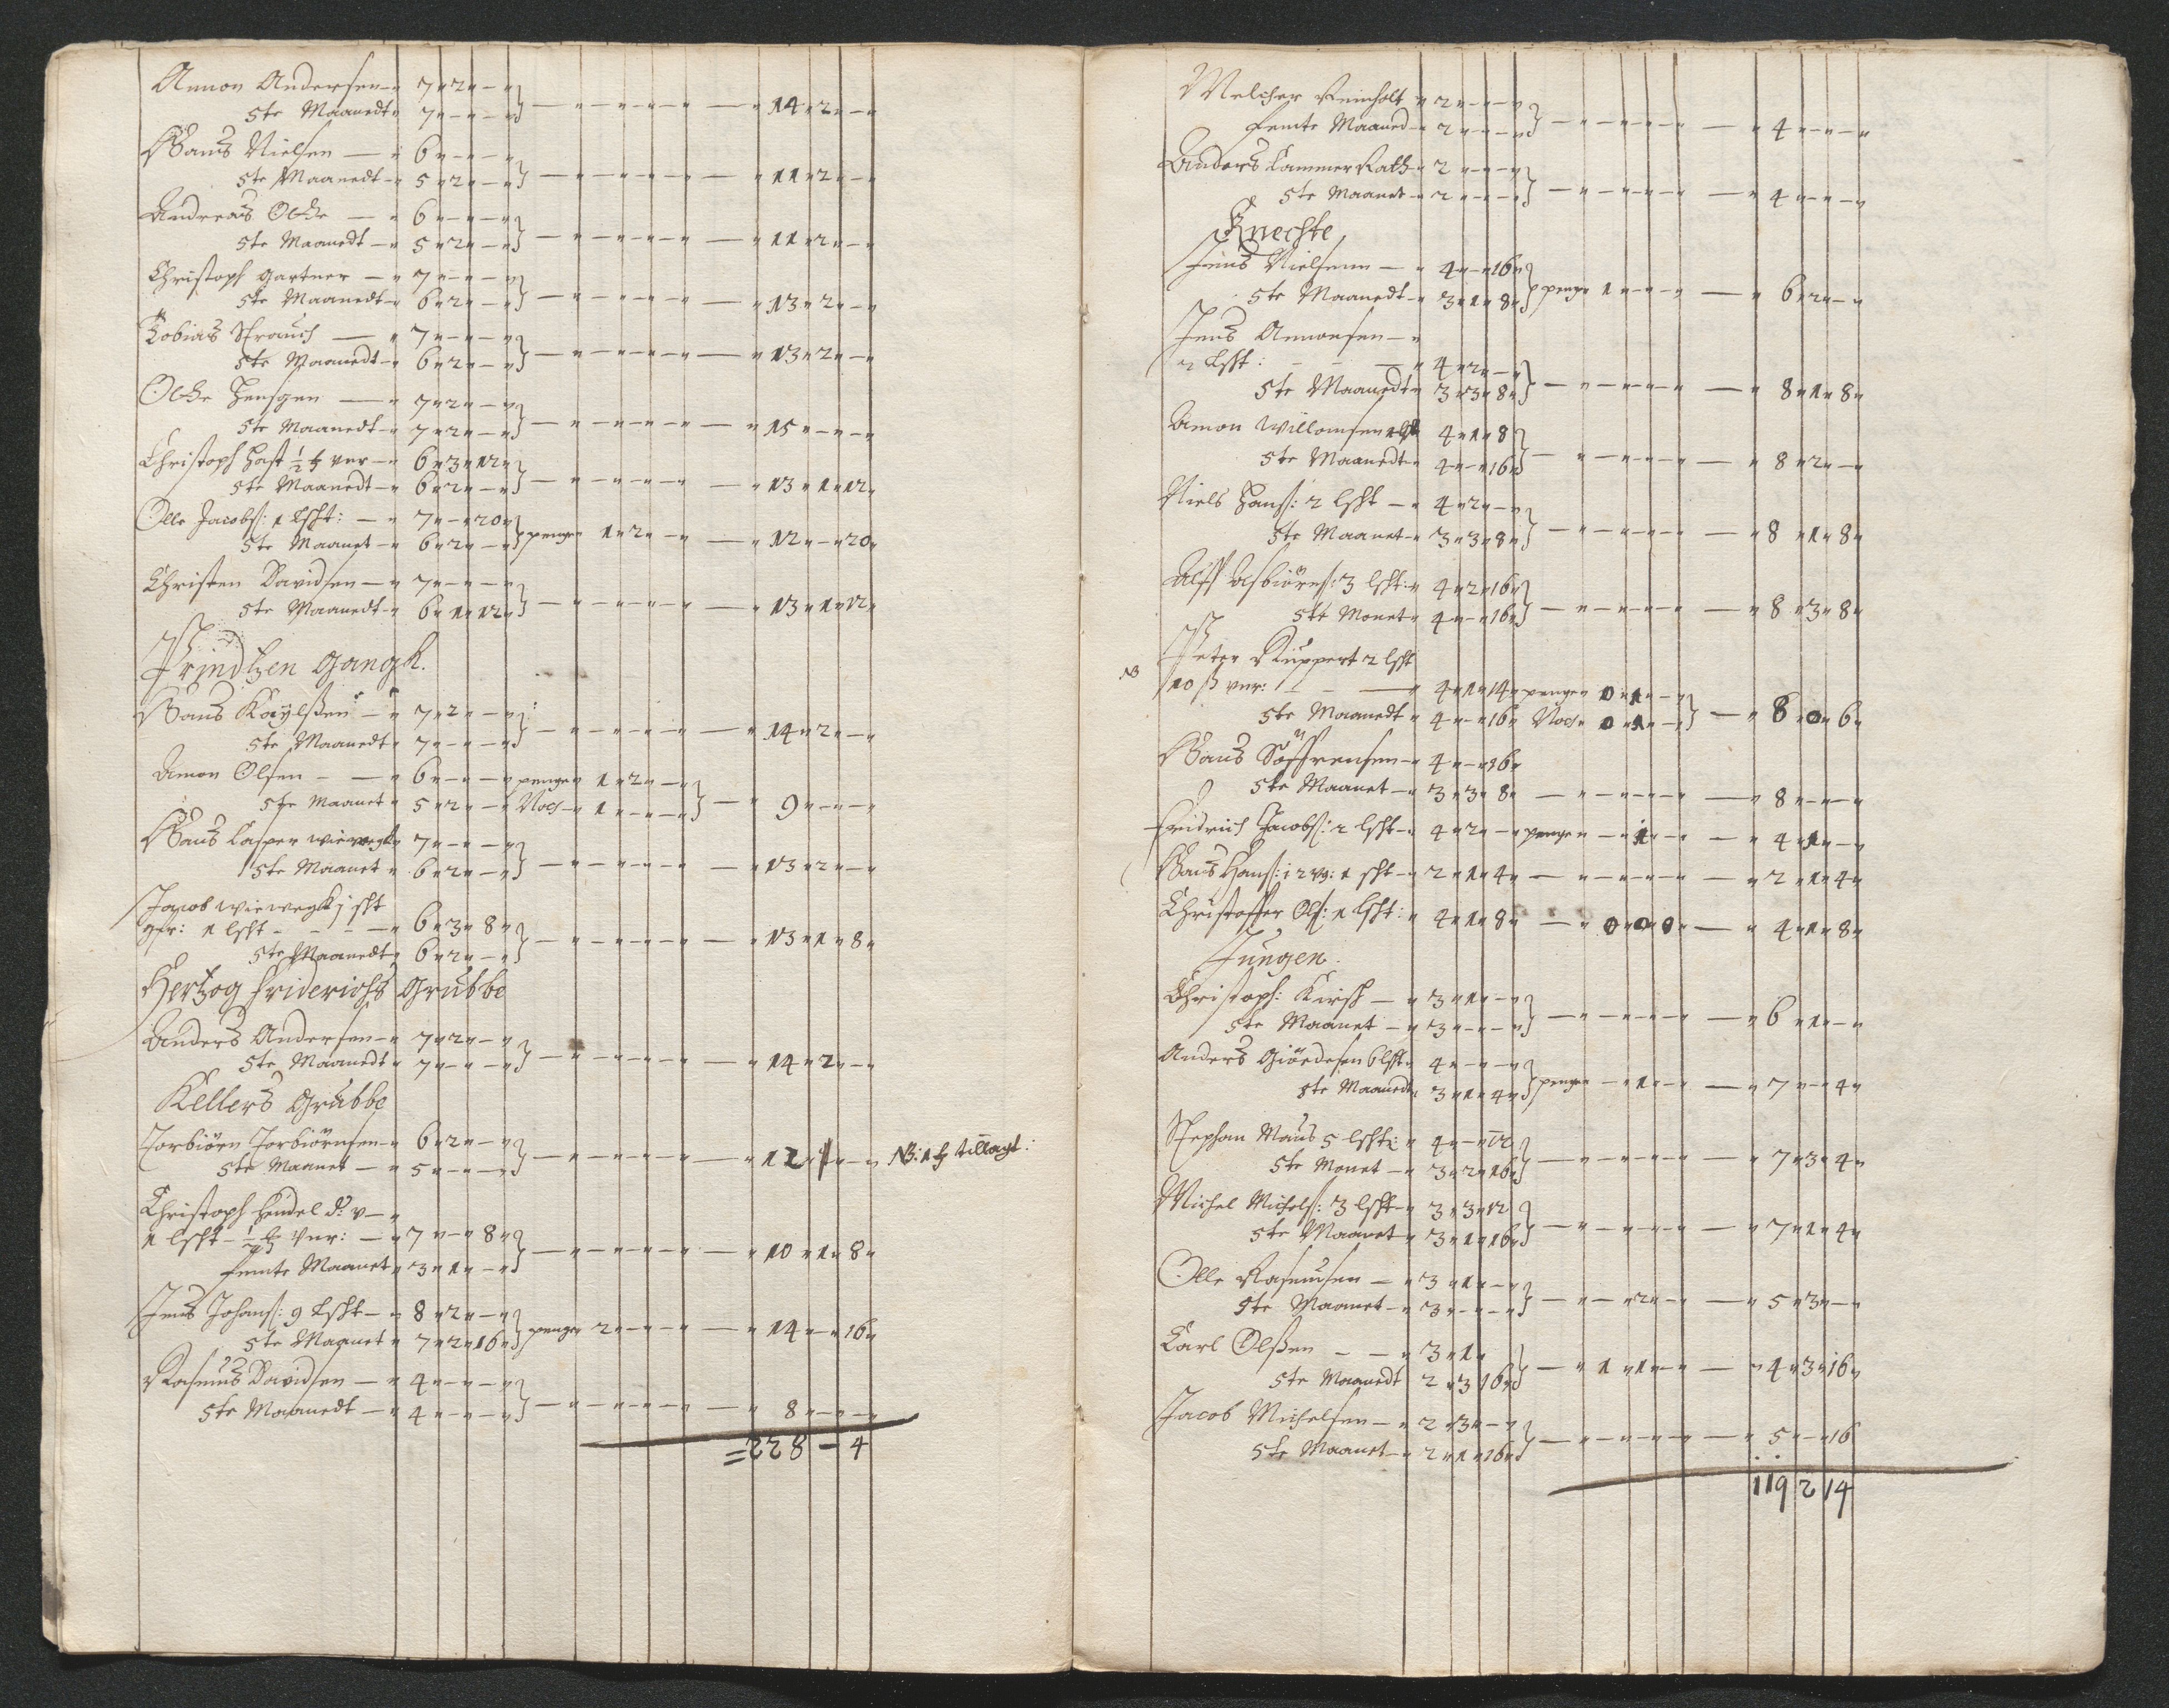 Amon Andersen — 7 " 2 " — "
5te Maanedt " 7 " — " — " } — " — " — " — " — " 14 " 2 " — "
Hans Nielsen — " 6 " — " — "
5te Maanedt — " 5 " 2 " — " } — " — " — " — " — " 11 " 2 " — "
Andreas Olde — " 6 " — " — "
5te Maanedt — " 5 " 2 " — " } — " — " — " — " — " 11 " 2 " — "
Christoph Gartner — " 7 " — " — "
5te Maanedt — " 6 " 2 " — " } — " — " — " — " — " 13 " 2 " — "
Tobias Strauch — " 7 " — " — "
5te Maanedt — " 6 " 2 " — " } — " — " — " — " — " 13 " 2 " — "
Olde Hensgen — " 7 " 2 " — "
5te Maanedt — " 7 " 2 " — " } — " — " — " — " — " 15 " — " — "
Christoph Hast ½ ver — " 6 " 3 " 12 "
5te Maanedt — " 6 " 2 " — " } — " — " — " — " — " 13 " 1 " 12 "
Olle Jacobs: 1 lsht: — " 7 " — " 20 "
5te Maanet — " 6 " 2 " — " } penge " 1 " 2 " — " — " 12 " — " 20 "
Christen Davidsen — " 7 " — " — "
5te Maanedt — " 6 " 1 " 12 " } — " — " — " — " — " 13 " 1 " 12 "
Prindtzen Gangk.
Hans Kaÿlsen — " 7 " 2 " — "
5te Maanedt " 7 " — " — " } — " — " — " — " — " 14 " 2 " — "
Amon Olsen — — " 6 " — " — " penge " 1 " 2 " — "
5te Maanet " 5 " 2 " — " Noes — " 1 " — " — " } — " 9 " — " — "
Hans Casper wiewegk " 7 " — " — "
5te Maanet " 6 " 2 " — " } — " — " — " — " — " 13 " 2 " — "
Jacob wiewegk j sht
ger: 1 lsht — — — " 6 " 3 " 8 "
5te Maanedt " 6 " 2 " — " } — " — " — " — " — " 13 " 1 " 8 "
Hertzog Friderichs Grubbe
Anders Andersen — " 7 " 2 " — "
5te Maanedt " 7 " — " — " } — " — " — " — " — " 14 " 2 " — "
Kellers Grubbe
Torbiörn Torbiörnsen — " 6 " 2 " — "
5te Maanet — " 5 " — " — " } — " — " — " — " — " 12 " 1 " — " NB: 1 tillagt:
Christoph Hendel d: v — "
1 lsht — ½ ver: — " 7 " — " 8 "
femte Maanet " 3 " 1 " — " } — " — " — " — " — " 10 " 1 " 8 "
Jens Johans: 9 lsht — " 8 " 2 " — "
5te Maanet " 7 " 2 " 16 " } penge " 2 " — " — " — " 14 " — " 16 "
Rasmus Davidsen — " 4 " — " — "
5te Maanedt — " 4 " — " — " } — " — " — " — " — " 8 " — " — "
= 228 — 4
Melcher Reinholt " 2 " — " — "
femte Maaned — " 2 " — " — " } — " — " — " — " — " 4 " — " — "
Anders Cammer Rath " 2 " — " — "
5te Maanet — " 2 " — " — " } — " — " — " — " — " 4 " — " — "
Knechte
Jens Nielsenn — " 4 " — " 16 "
5te Maanedt — " 3 " 1 " 8 " } penge " 1 " — " — " — " 6 " 2 " — "
Jens Amonsen — "
2 lsht: — — — " 4 " 2 " — "
5te Maanedt " 3 " 3 " 8 " } — " — " — " — " — " 8 " 1 " 8 "
Amon Willomsen 4 " 1 " 8
5te Maanedt " 4 " — " 16 " } — " — " — " — " — " 8 " 2 " — "
Niels Hans: 2 lsht — " 4 " 2 " — "
5te Maanet — " 3 " 3 " 8 " } — " — " — " — " — " 8 " 1 " 8 "
Alff Asbiörns: 3 lsht: " 4 " 2 " 16 "
5te Monet " 4 " — " 16 " } — " — " — " — " — " 8 " 3 " 8 "
Peter Ruppert 2 lsht
NB 10 ß ver: — — — " 4 " 1 " 14 " penge " 0 " 1 " — "
5te Maanedt " 4 " — " 16 " Noes " 0 " 1 " — " } — " 8 " 0 " 6 "
Hans Söffrensen — " 4 " — " 16 "
5te Maanet — " 3 " 3 " 8 " — " — " — " — " — " 8 " — " — "
Fridrich Jacobs: 2 lsht — " 4 " 2 " — " penge " — " 1 " — " — " 4 " 1 " — "
Hans Hans: i 2 vg: 1 sht — " 2 " 1 " 4 " — " — " — " — " — " 2 " 1 " 4 "
Christoffer Ols: 1 lsht: " 4 " 1 " 8 " — " 0 " 0 " 0 " — " 4 " 1 " 8 "
Jungen.
Christoph: Kirsh — " 3 " 1 " — "
5te Maanet — " 3 " — " — " } — " — " — " — " — " 6 " 1 " — "
Anders Giördesen 6 lsht " 4 " — " — "
5te Maanedt " 3 " 1 " 4 " } penge " — " 1 " — " — " 7 " — " 4 "
Stephan Maus 5 lsht: " 4 " — " 12
5te Monet — " 3 " 2 " 16 " } — " — " — " — " — " 7 " 3 " 4 "
Michel Michels: 3 lsht — " 3 " 3 " 12
5te Maanet — " 3 " 1 " 16 " } — " — " — " — " — " 7 " 1 " 4 "
Olle Rasmusen — " 3 " 1 " — "
5te Maanet — " 3 " — " — " } — " — " 2 " — " — " 5 " 3 " — "
Carl Olsen — — " 3 " 1 "
5te Maanedt 2 " 3 16 " } — " 1 " 1 " — " — " 4 " 3 " 16 "
Jacob Michelsen — " 2 " 3 " — "
5te Maanet — " 2 " 1 " 16 " } — " — " — " — " — " 5 " — " 16
119 2 14